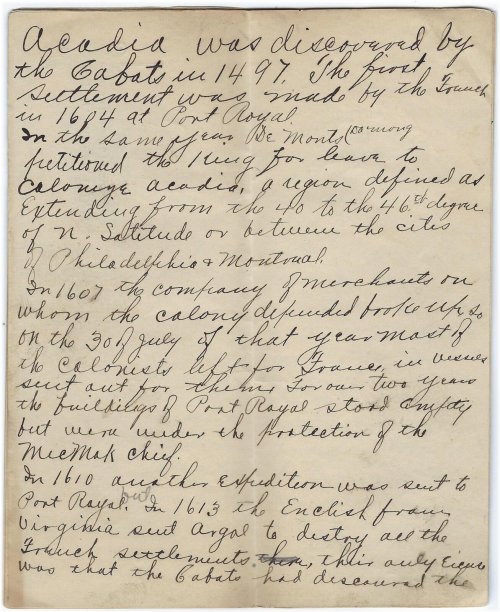 Acadia was discovered by
the Cabats in 1497. The first
settlement was made by the French
in 1604 at Port Royal.
In the same year De Monts
petitioned the King for leave to
Colonize acadia, a region defined as
Extending from the 40 to the 46th degree
of N. Latitude or between the cities
of Philadelphia & Montreal.
In 1607 the company of merchants on
whom the colony depended broke up, so
on the 30 of July of that year most of
the Colonists left for France, in vessels
sent out for them. For over two years
the buildings of Port Royal stood empty
but were under the protection of the
MicMak chief.
In 1610 another Expedition was sent to
Port Royal. but In 1613 the English from
Virginia sent Argal to destroy all the
French settlements, their only
was that the Cabats had discovered the